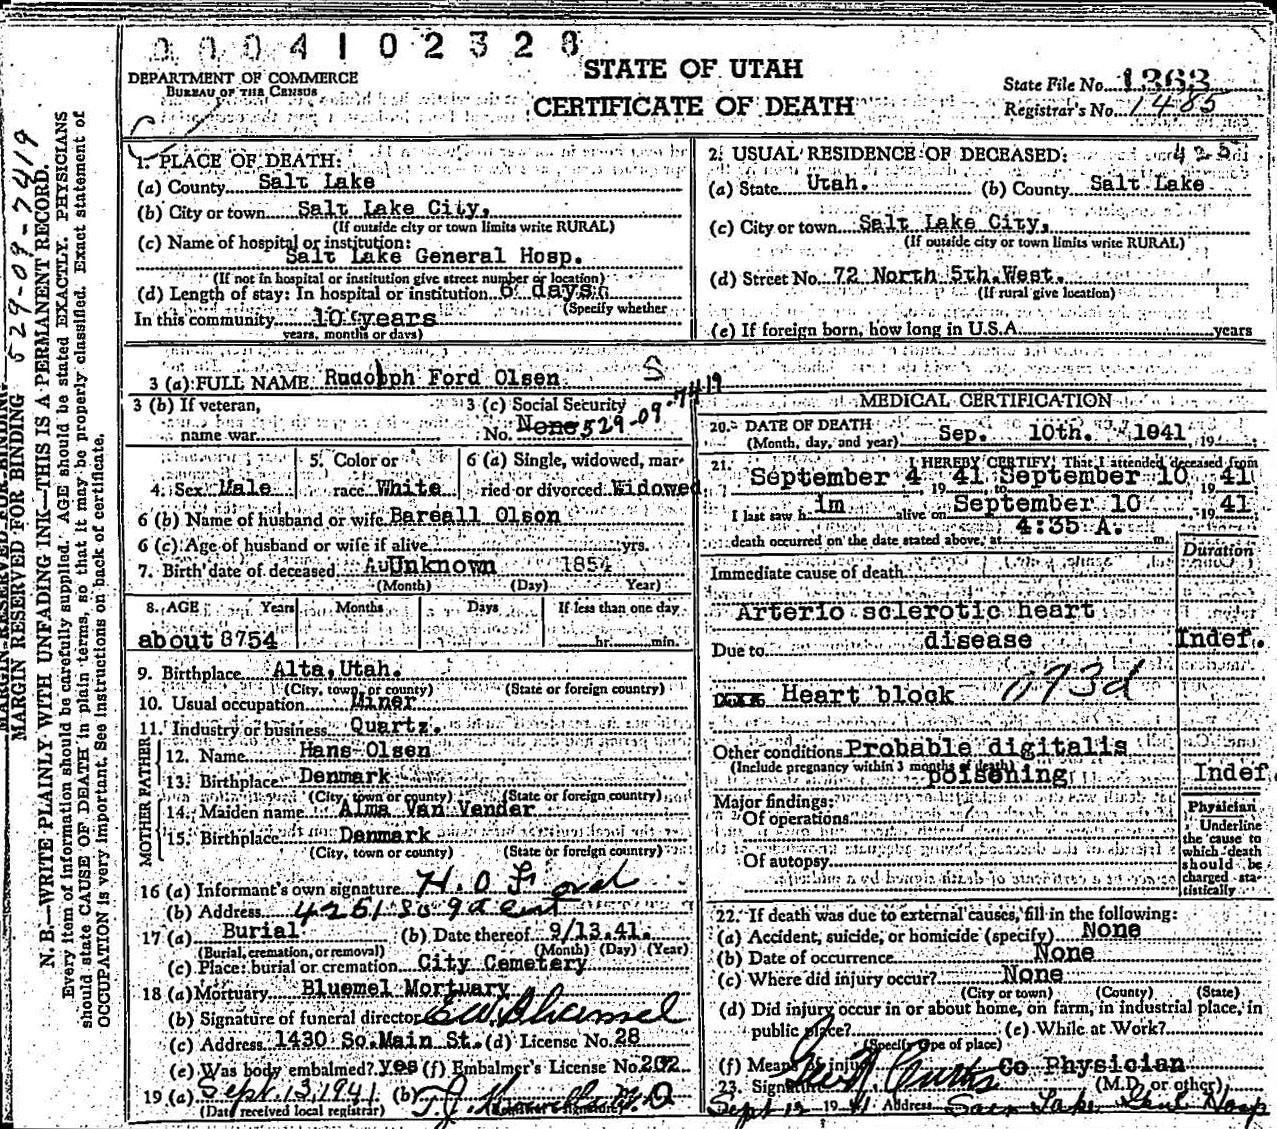 0004102328
DEPARTMENT OF COMMERCE
BUREAU OF THE CENSUS
STATE OF UTAH
CERTIFICATE OF DEATH
State File No. 1363
Registrar's No. 1485
MARGIN RESERVED FOR BINDING 529-09-7419
N. B.—WRITE PLAINLY WITH UNFADING INK—THIS IS A PERMANENT RECORD.
Every item of information should be carefully supplied. AGE should be stated EXACTLY. PHYSICIANS
should state CAUSE OF DEATH in plain terms, so that it may be properly classified. Exact statement of
OCCUPATION is very important. See instructions on back of certificate.
1. PLACE OF DEATH:
(a) County Salt Lake
(b) City or town Salt Lake City,
(If outside city or town limits write RURAL)
(c) Name of hospital or institution:
Salt Lake General Hosp.
(If not in hospital or institution give street number or location)
(d) Length of stay: In hospital or institution 6 days
(Specify whether
In this community 10 years
years, months or days)
2. USUAL RESIDENCE OF DECEASED: 425
(a) State Utah. (b) County Salt Lake
(c) City or town Salt Lake City,
(If outside city or town limits write RURAL)
(d) Street No. 72 North 5th.West.
(If rural give location)
(e) If foreign born, how long in U.S.A. years
3 (a) FULL NAME Rudolph Ford Olsen
3 (b) If veteran,
name war
3 (c) Social Security
No. None 529-09-7419
4. Sex Male
5. Color or
race White
6 (a) Single, widowed, mar-
ried or divorced Widowed
6 (b) Name of husband or wife Bareall Olson
6 (c) Age of husband or wife if alive yrs.
7. Birth date of deceased Unknown 1854
(Month) (Day) Year)
8. AGE Years Months Days If less than one day
about 8754 hr. min.
9. Birthplace Alta,Utah.
(City, town, or county) (State or foreign country)
10. Usual occupation Miner
11. Industry or business Quartz.
FATHER
12. Name Hans Olsen
13. Birthplace Denmark
(City, town or county) (State or foreign country)
MOTHER
14. Maiden name Alma Van Vender
15. Birthplace Denmark
(City, town or county) (State or foreign country)
16 (a) Informant's own signature H. O. Ford
(b) Address 4251 So 9th East
17 (a) Burial (b) Date thereof 9/13.41.
(Burial, cremation, or removal) (Month) (Day) (Year)
(c) Place: burial or cremation City Cemetery
18 (a) Mortuary Bluemel Mortuary
(b) Signature of funeral director
(c) Address 1430 So.Main St. (d) License No. 28
(e) Was body embalmed? yes (f) Embalmer's License No. 202
19 (a) Sept. 13, 1941 (b)
(Date received local registrar)
MEDICAL CERTIFICATION
20. DATE OF DEATH
(Month, day, and year) Sep. 10th. 1941 , 19
21. I HEREBY CERTIFY, That I attended deceased from
September 4 , 19 41 to September 10 , 19 41
I last saw h im alive on September 10 , 19 41
death occurred on the date stated above, at 4:35 A. m.
Duration
Immediate cause of death
Arterio sclerotic heart
Due to disease Indef.
Heart block 093d
Other conditions Probable digitalis
(Include pregnancy within 3 months of death)
poisening Indef.
Major findings:
Of operations
Of autopsy
Physician
Underline
the cause to
which death
should be
charged sta-
tistically
22. If death was due to external causes, fill in the following:
(a) Accident, suicide, or homicide (specify) None
(b) Date of occurrence None
(c) Where did injury occur? None
(City or town) (County) (State)
(d) Did injury occur in or about home, on farm, in industrial place, in
public place? (e) While at Work?
(Specify type of place)
(f) Means of injury Co Physician
23. Signature Geo N Curtis (M.D. or other)
Sept 12 19 41 Address Salt Lake Genl Hosp